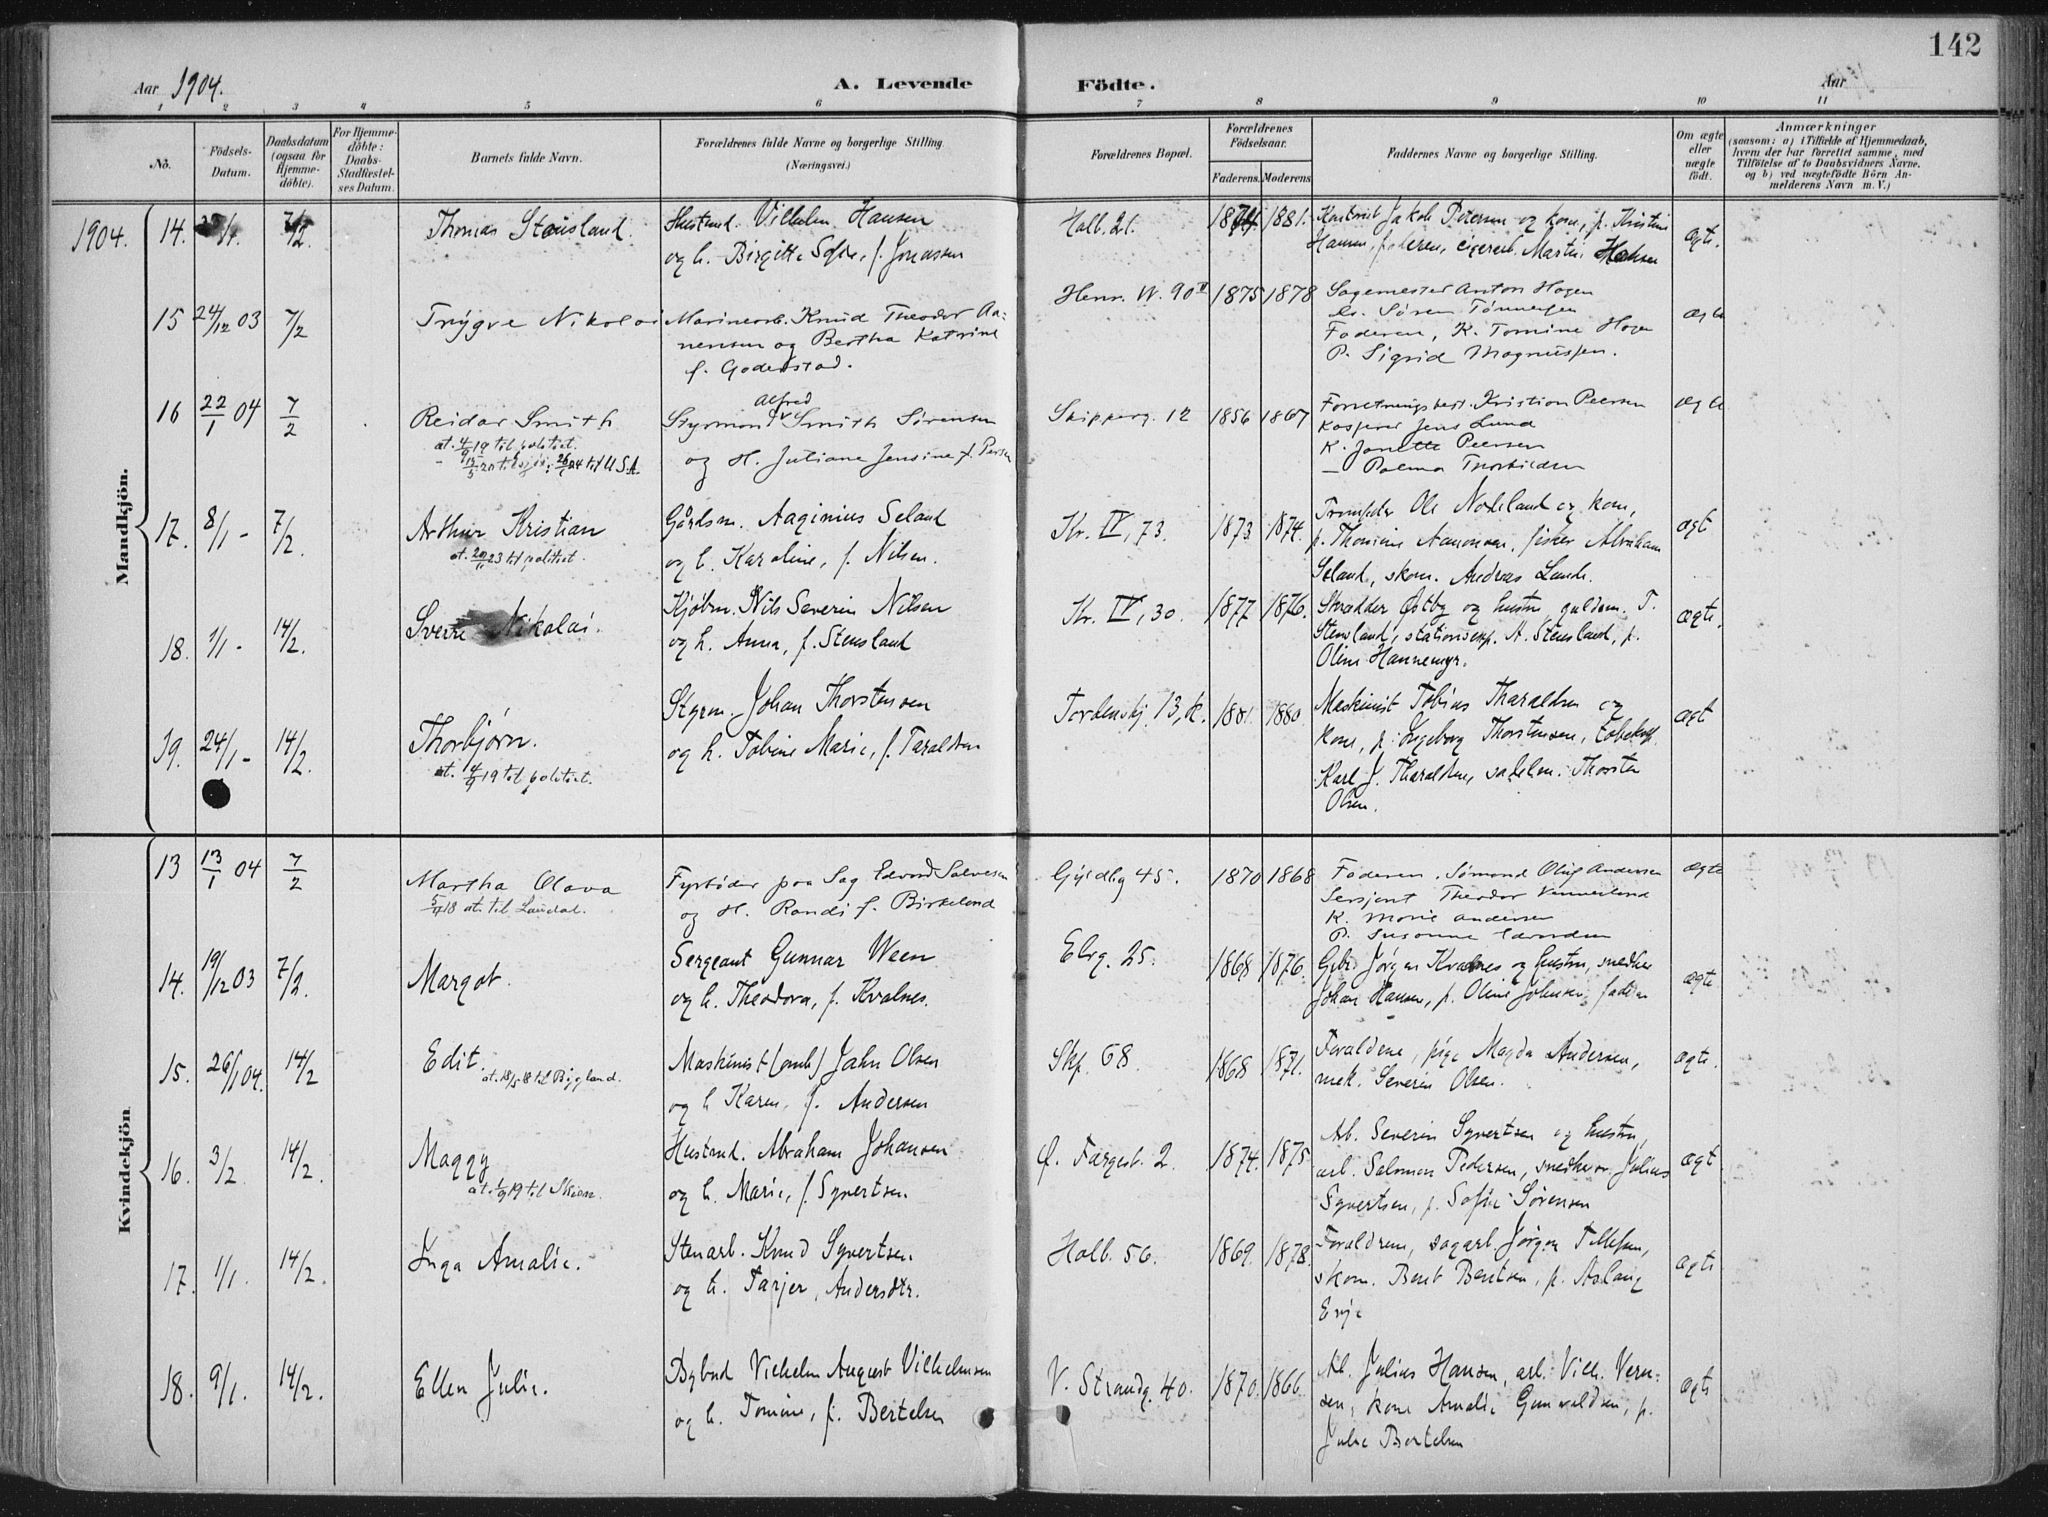 142
Aar 1904.
A. Levende Födte.
Aar
1 2 3 4 5 6 7 8 9 10 11
Nô.
Födsels-Datum.
Daabsdatum (ogsaa for Hjemme-döbte).
For Hjemme-döbte: Daabs-Stadfæstel-ses Datum.
Barnets fulde Navn.
Forældrenes fulde Navne og borgerlige Stilling. (Næringsvei.)
Forældrenes Bopæl.
Forældrenes Födselsaar.
Faderens. Moderens
Faddernes Navne og borgerlige Stilling.
Om ægte eller uægte födt.
Anmærkninger
(saasom: a) i Tilfælde af Hjemmedaab, hvem der har forrettet samme, med Tilföielse af to Daabsvidners Navne, og b) ved uægtefödte Börn An-melderens Navn m. V.)
Mandkjön.
1904. 14. 7/2 Thomas Stensland. Vilhelm Hansen Holb. 21. 1881. Jakob Petersen og kone, p. Kristine ægte.
og h. Birgitte Sofie, f. Jonassen Hansen, faderen, Martin Hansen
15 24/12 03 7/2 Trygve Nikolai Marinearb. Knud Theodor Aa- Henr. W. 90 II 1875 1878 Sagemester Anton Hagen ægte
nensen og Bertha Katrine Søren Tønnesen
f. Goderstad. Faderen, K. Tomine Hagen
P. Sigrid Magnussen.
16 22/1 04 7/2 Reidar Smith Alfred
Styrmand Smith Sørensen Skipperg. 12 1856 1867 Kristian Peersen ægte
at. 4/9 19 til politiet. og H. Juliane Jensine f. Persen Kasserer Jens Lund
til U.S.A. K. Janette Peersen
— Palma Thorkildsen
17. 8/1 - 7/2. Arthur Kristian Gårdsm. Aaginius Seland Kr. IV, 73. 1873 1874. Ole Nodeland og kone, ægt
at. 20/11 23 til politiet. og h. Karoline, f. Nilsen. p. Thomine Aanonsen, fisker Abraham
Seland, skom. Andreas Lande.
18. 1/1 - 14/2. Sverre Nikolai. Kjøbm. Nils Severin Nilsen Kr. IV, 30. 1877 1876. Skrædder Østby og hustru, guldsm. T. ægte.
og h. Anna, f. Stensland Stensland, stationsexp. A. Stensland, p.
Oline Hannemyr.
19. 24/1 - 14/2. Thorbjørn. Styrm. Johan Thorstensen Tordenskj. 13, k. 1881. 1880. Maskinist Tobias Tharaldsen og ægt
at. 14/9 19 til politiet. og h. Tobine Marie, f. Taraldsen kone, p. Ingeborg Thorstensen,
Karl J. Tharaldsen, sadelm. Thorsten
Olsen.
Kvindekjön.
13 13/1 04 7/2 Martha Olava Fyrbøder paa Sag Edvard Salvesen Gyldlg 45. 1870 1868 Faderen. Sømand Oluf Andersen ægte
5/11 18 at. til Laudal. og H. Randi f. Birkeland Sersjent Theodor
K. Marie Andersen
P. Susanne
14. 19/12 03 7/2. Margot. Sergeant Gunnar Ween Elvg. 25. 1868 1876. Gbr. Jørgen Kvalnes og hustru, snedker ægte
og h. Theodora, f. Kvalnes. Johan Hansen, p. Oline Johnsen, faderen
15. 26/1 04. 14/2 Edit. Maskinist (omb) Jahn Olsen Skp. 68. 1868 1871. Forældrene, pige Magda Andersen, ægte.
at. 18/5 18 til Bygland. og h Karen, f. Andersen mek. Severin Olsen.
16. 3/2. 14/2. Maggy Hustømd. Abraham Johansen Ø. Fargest. 2. 1874. 1875 Arb. Severin Syvertsen og hustru, ægt.
at. 1/9 19 til Skien. og h. Marie, f. Syvertsen arb. Salomon Pedersen, snedkersv. Julius
Syvertsen, p. Sofie Sørensen
17. 1/1. 14/2. Inga Amalie. Stenarb. Knud Syvertsen Holb. 56. 1869. 1878. Forældrene, sagarb. Jørgen Tellefsen, ægte
og h. Tarjer, Andersdtr. skom. Bent Bentsen, p. Aslaug
Evje
18. 9/1. 14/2. Ellen Julie. Bybud Vilhelm August Vilhelmsen V. Strandg. 40. 1870. 1866. Arb. Julius Hansen, arb. Vilh. ægte
og h. Tomine, f. Bertelsen sen, kone Amalie Gunvaldsen, p.
Julie Bertelsen